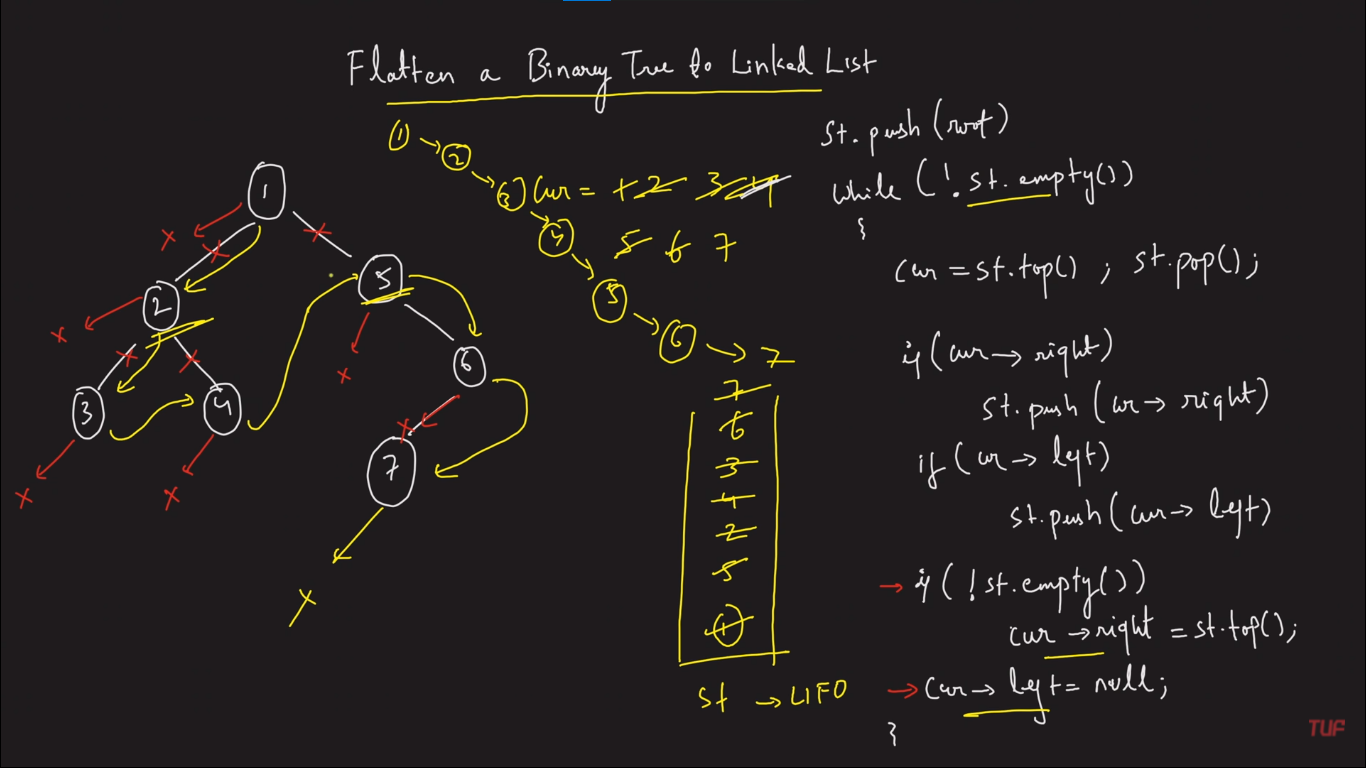 Flatten a Binary Tree to Linked List
1
2
3
4
5
6
7
1
2
5
3
4
6
7
x
x
x
x
x
x
x
x
x
x
x
x
Cur = 1 2 3 4
5 6 7
7
6
3
4
2
5
1
st → LIFO
St.push(root)
while (!st.empty())
{
cur = st.top() ; st.pop();
if (cur → right)
st.push (cur → right)
if (cur → left)
st.push (cur → left)
→ if (!st.empty())
cur → right = st.top();
→ cur → left = null;
}
TUF